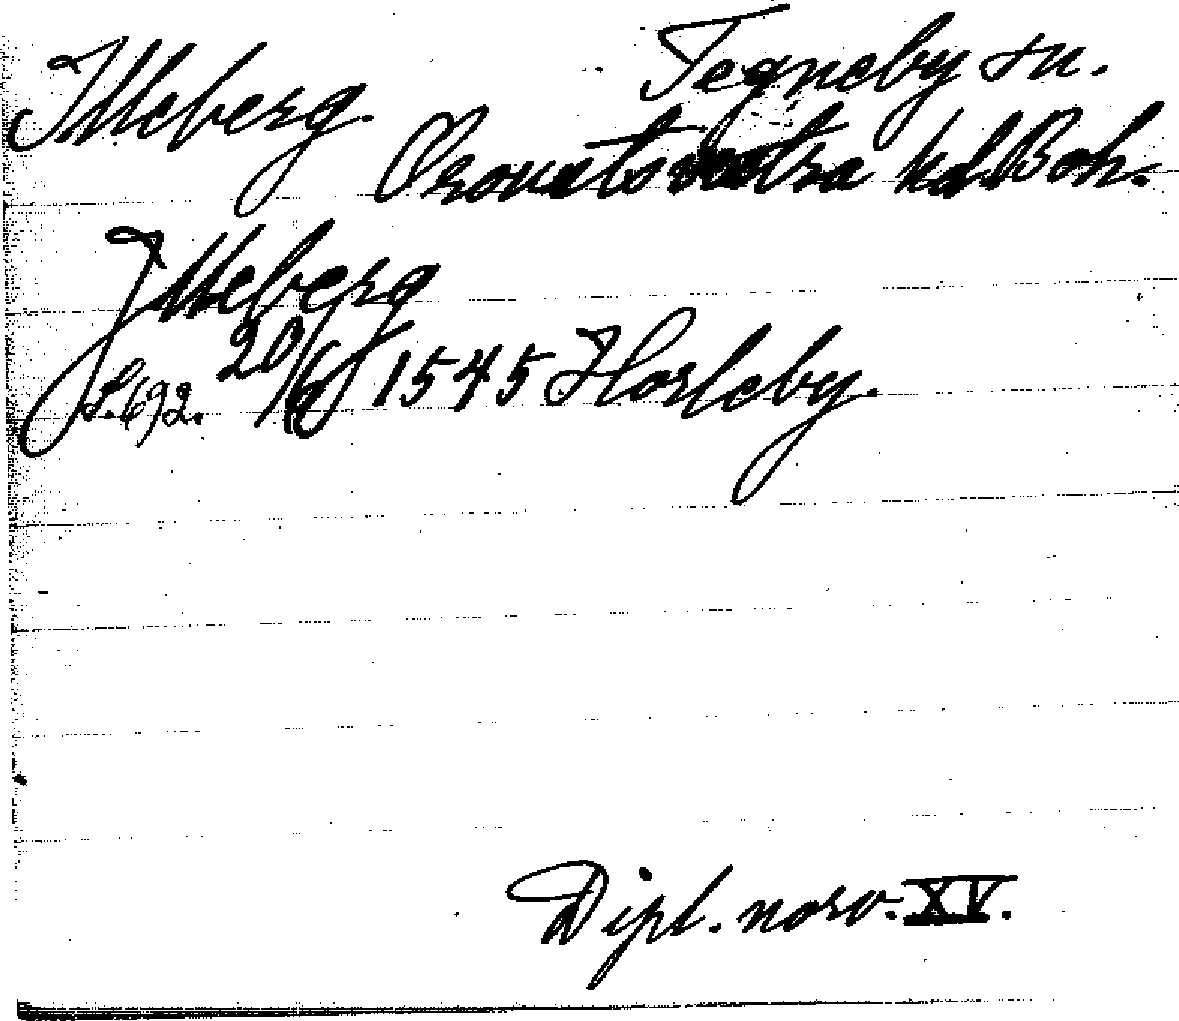 Illeberg. Tegneby sn.
Orousts västra hd. Boh.
Illeberg
S. 692. 20/6 1545 Horleby.
Dipl. norv. XV.